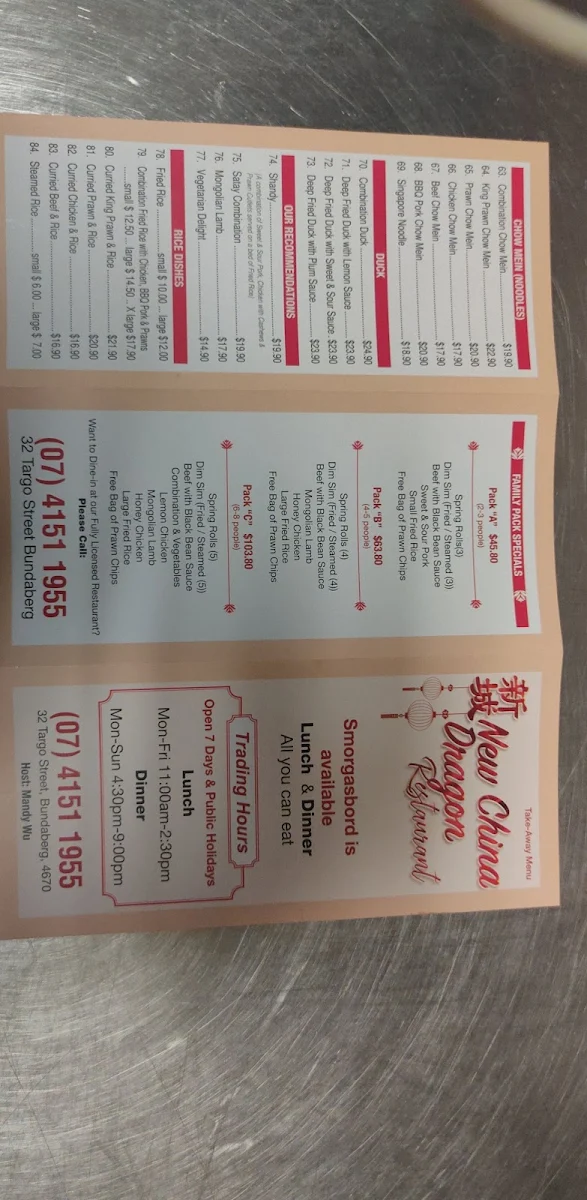 CHOW MEIN (NOODLES)
63. Combination Chow Mein $19.90
64. King Prawn Chow Mein $22.90
65. Prawn Chow Mein $20.90
66. Chicken Chow Mein $17.90
67. Beef Chow Mein $17.90
68. BBQ Pork Chow Mein $20.90
69. Singapore Noodle $18.90
DUCK
70. Combination Duck $24.90
71. Deep Fried Duck with Lemon Sauce $23.90
72. Deep Fried Duck with Sweet & Sour Sauce $23.90
73. Deep Fried Duck with Plum Sauce $23.90
OUR RECOMMENDATIONS
74. Shandy $19.90
(A combination of Sweet & Sour Pork, Chicken with Cashews &
Prawn Cutlets served on a bed of Fried Rice)
75. Satay Combination $19.90
76. Mongolian Lamb $17.90
77. Vegetarian Delight $14.90
RICE DISHES
78. Fried Rice small $ 10.00 ... large $12.00
79. Combination Fried Rice with Chicken, BBQ Pork & Prawns
small $ 12.50 .. large $ 14.50 .. X large $17.90
80. Curried King Prawn & Rice $21.90
81. Curried Prawn & Rice $20.90
82. Curried Chicken & Rice $16.90
83. Curried Beef & Rice $16.90
84. Steamed Rice small $ 6.00 ... large $ 7.00
FAMILY PACK SPECIALS
Pack "A" $45.80
(2-3 people)
Spring Rolls(3)
Dim Sim (Fried / Steamed (3))
Beef with Black Bean Sauce
Sweet & Sour Pork
Small Fried Rice
Free Bag of Prawn Chips
Pack "B" $63.80
(4-5 people)
Spring Rolls (4)
Dim Sim (Fried / Steamed (4))
Beef with Black Bean Sauce
Mongolian Lamb
Honey Chicken
Large Fried Rice
Free Bag of Prawn Chips
Pack "C" $103.80
(6-8 people)
Spring Rolls (5)
Dim Sim (Fried / Steamed (5))
Beef with Black Bean Sauce
Combination & Vegetables
Lemon Chicken
Mongolian Lamb
Honey Chicken
Large Fried Rice
Free Bag of Prawn Chips
Want to Dine-in at our Fully Licensed Restaurant?
Please Call:
(07) 4151 1955
32 Targo Street Bundaberg
Take-Away Menu
新城
New China
Dragon
Restaurant
Smorgasbord is
available
Lunch & Dinner
All you can eat
Trading Hours
Open 7 Days & Public Holidays
Lunch
Mon-Fri 11:00am-2:30pm
Dinner
Mon-Sun 4:30pm-9:00pm
(07) 4151 1955
32 Targo Street, Bundaberg, 4670
Host: Mandy Wu